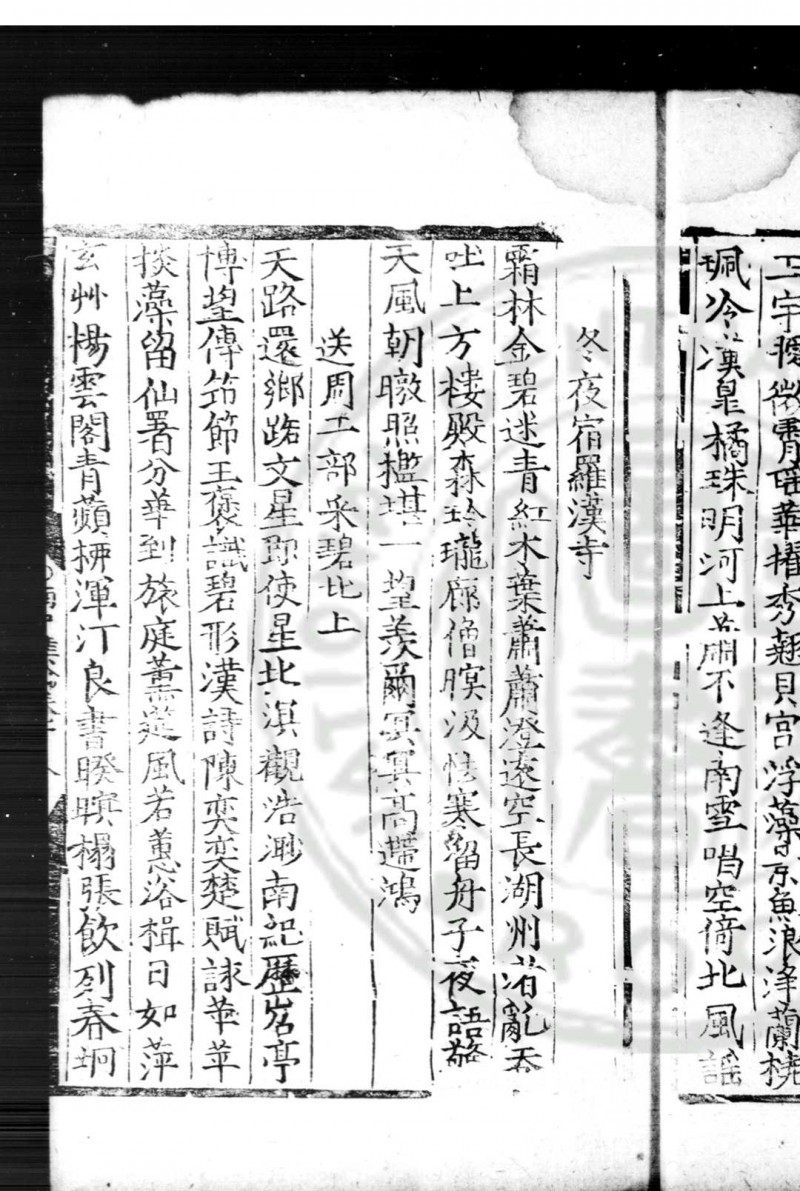 工宇 微霄 華擢秀翹貝宮浮藻 魚浪浄蘭橈
珮冷漢皐橘珠明河上 不逢南雪唱空倚北風謡
冬夜宿羅漢寺
霜林金碧迷青紅木葉蕭蕭澄遠空長湖州渚亂吞
吐上方樓殿森玲瓏廊僧暝汲怯寒溜舟子夜語驚
天風朝暾照檻堪一望羨爾冥冥高逝鴻
送周工部采碧北上
天路還鄉路文星即使星北溟觀浩渺南紀歷岩亭
博望傳笻節王褒識碧形漢詩陳奕奕楚賦詠華苹
掞藻留仙署分華到旅庭薰 風若蕙浴楫日如萍
玄艸楊雲閣青蘋拼渾汀良書暌暝榻張飲列春坰